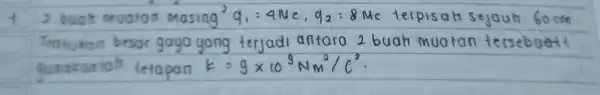 1 2 buah muatan masing² q₁ : 4Mc, q₂ : 8 Mc terpisah sejauh 60 cm
Tentukan besar gaya yang terjadi antara 2 buah muatan tersebut!
gunakanlah tetapan k = 9 x 10⁹ Nm²/C².